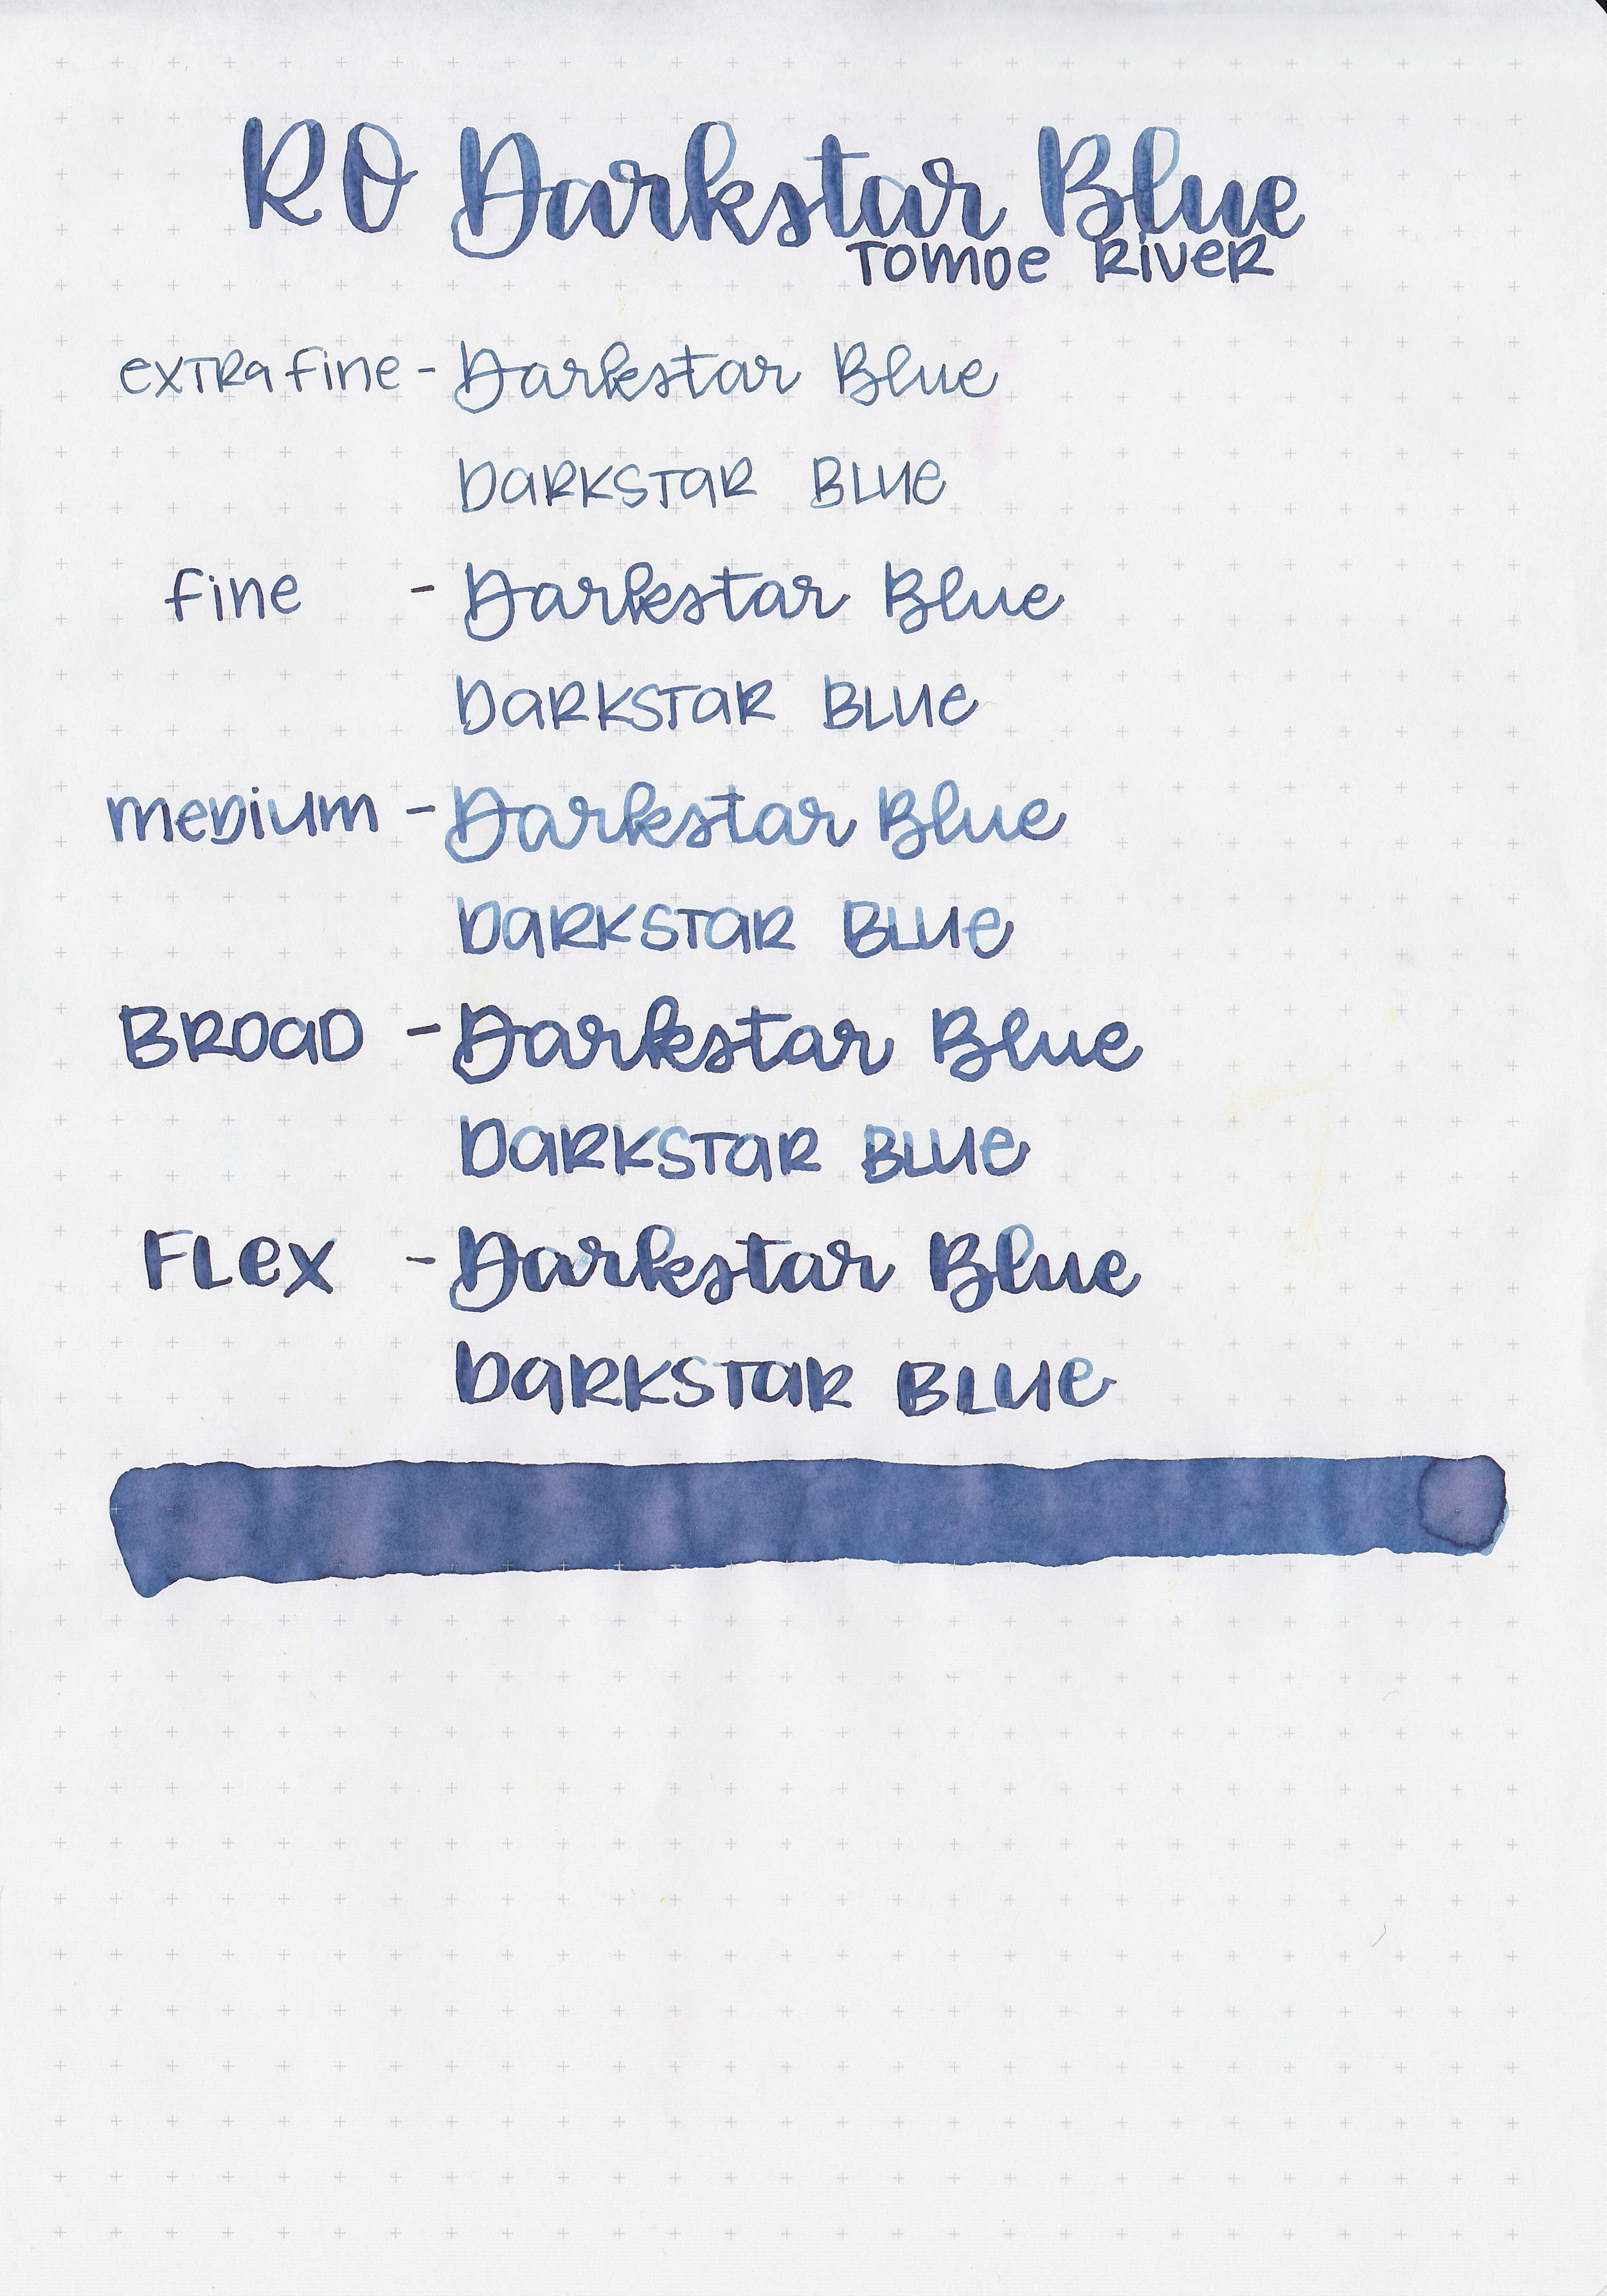 RO Darkstar Blue
TOMOE RIVER
EXTRA FINE - Darkstar Blue
DARKSTAR BLUE
FINE - Darkstar Blue
DARKSTAR BLUE
MEDIUM - Darkstar Blue
DARKSTAR BLUE
BROAD - Darkstar Blue
DARKSTAR BLUE
FLEX - Darkstar Blue
DARKSTAR BLUE